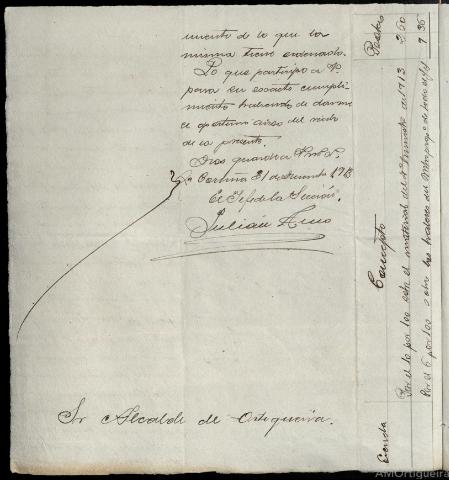 miento de lo que la
misma tiene ordenado.
Lo que participo a V.
para su exacto cumpli-
miento habiendo de darme
el oportuno aviso del recibo
de la presente.
Dios guarde a V.
La Coruña 31 de 1913
El Jefe de la Sección
Julián
Sr Alcalde de Ortigueira.
Pesetas
2 50
7 36
Concepto
Por el 10 por 100 sobre el material del 4º trimestre de 1913
Por el 6 por 100 sobre los haberes del
AMOrtigueira